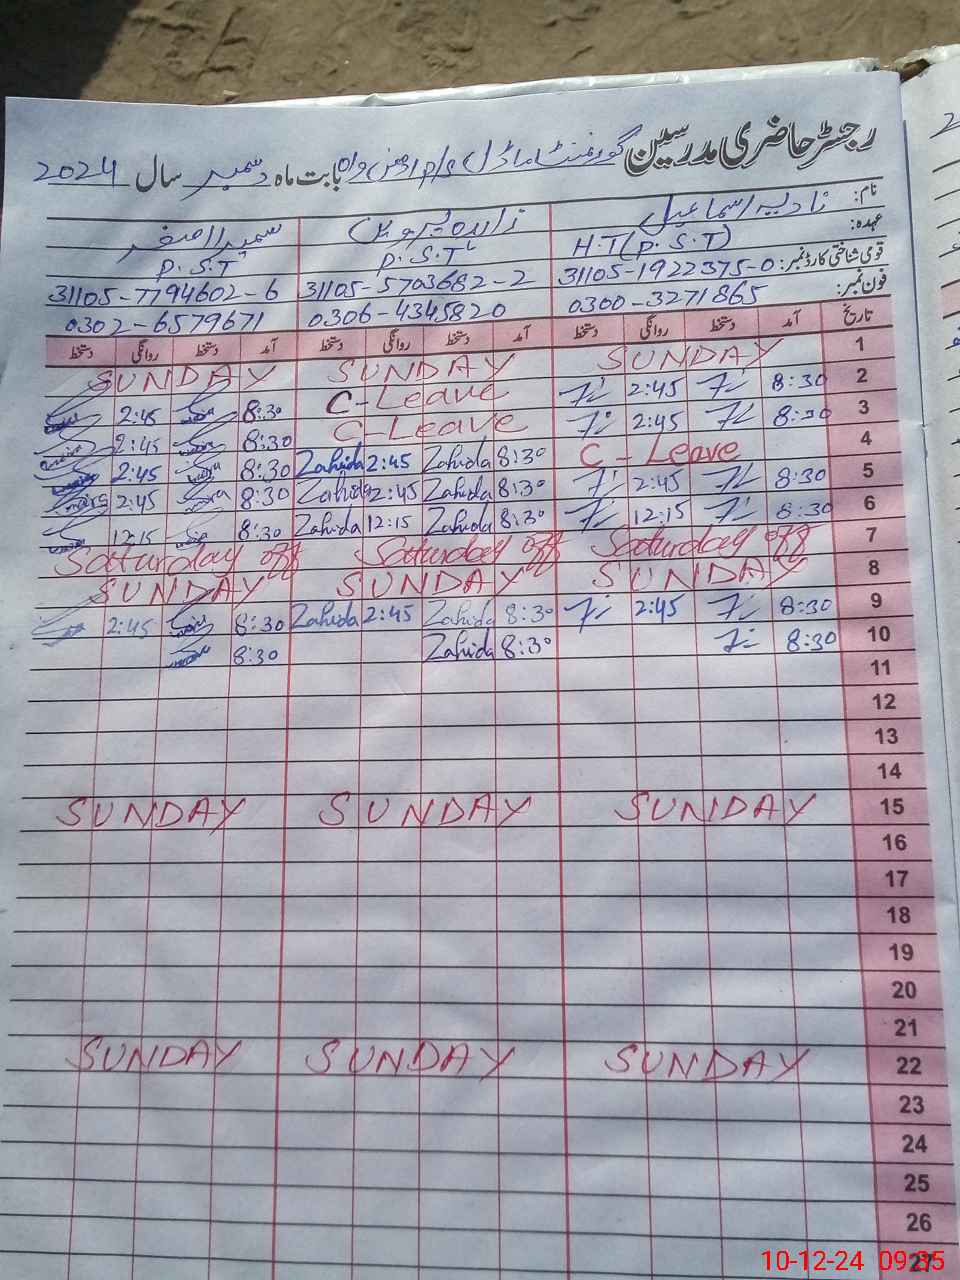 رجسٹر حاضری مدرسین گورنمنٹ ماڈل بابت ماہ دسمبر سال 2024
نام: نادیہ اسماعیل زاہدہ پروین سمیرا اصغر
عہدہ: H.T(P.S.T) P.S.T P.S.T
قومی شناختی کارڈ نمبر: 31105-1922375-0 31105-5703682-2 31105-7794602-6
فون نمبر: 0300-3271865 0306-4345820 0302-6579671
تاریخ آمد دستخط روانگی دستخط آمد دستخط روانگی دستخط آمد دستخط روانگی دستخط
1 SUNDAY SUNDAY SUNDAY
2 8:30 2:45 C-Leave 8:30 2:45
3 8:30 2:45 C-Leave 8:30 2:45
4 C-Leave 8:30 Zahida 2:45 Zahida 8:30 2:45
5 8:30 2:45 8:30 Zahida 2:45 Zahida 8:30 2:45
6 8:30 12:15 8:30 Zahida 12:15 Zahida 8:30 12:15
7 Saturday off Saturday off Saturday off
8 SUNDAY SUNDAY SUNDAY
9 8:30 2:45 8:30 Zahida 2:45 Zahida 8:30 2:45
10 8:30 8:30 Zahida 8:30
11
12
13
14
15 SUNDAY SUNDAY SUNDAY
16
17
18
19
20
21
22 SUNDAY SUNDAY SUNDAY
23
24
25
26
27
10-12-24 09:35